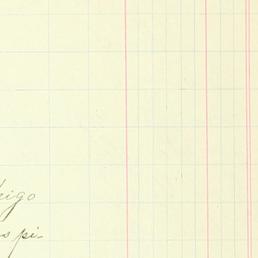 eigo
s pi-